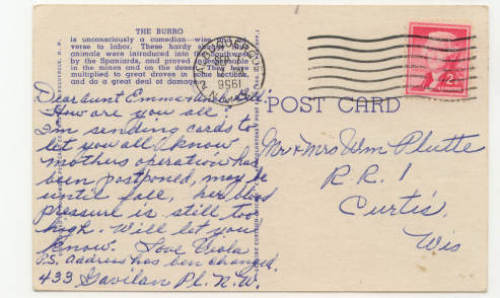 THE BURRO
is unconsciously a comedian—wise
verse to labor. These hardy
animals were introduced into
by the Spaniards, and proved
in the mines and on the desert. They have
multiplied to great droves in some sections,
and do a great deal of damage.
ALBUQUERQUE
1956
N. MEX.
2¢
POST CARD
Dear Aunt Emma and Bill,
How are you all,
I'm sending cards to
let you all know
mothers operation has
been postponed, may be
until fall, her blood
pressure is still too
high. Will let you
know. Love Viola
P.S. Address has been changed.
433 Gavilan Pl. N.W.
Mr & Mrs Wm Plutte
R.R. 1
Curtis,
Wis